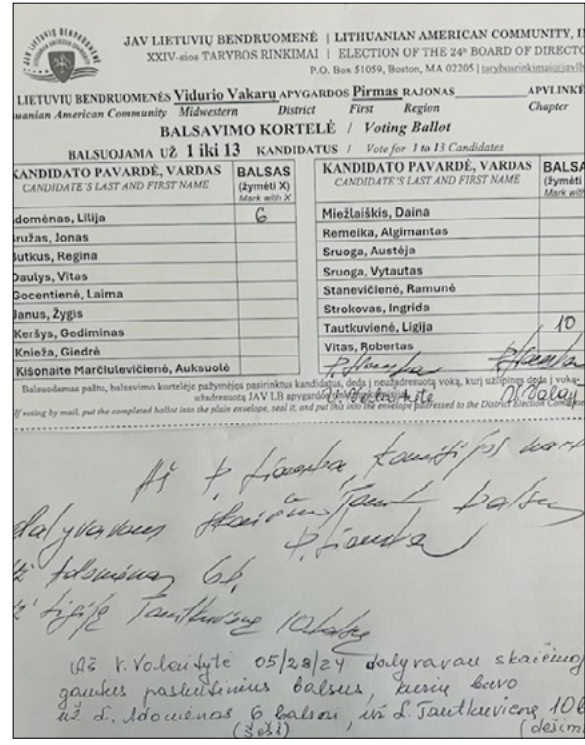 JAV LIETUVIŲ BENDRUOMENĖ | LITHUANIAN AMERICAN COMMUNITY, I
XXIV-sios TARYBOS RINKIMAI | ELECTION OF THE 24th BOARD OF DIRECTO
P.O. Box 51059, Boston, MA 02205 |
LIETUVIŲ BENDRUOMENĖS Vidurio Vakarų APYGARDOS Pirmas RAJONAS APYLINKĖ
uanian American Community Midwestern District First Region Chapter
BALSAVIMO KORTELĖ / Voting Ballot
BALSUOJAMA UŽ 1 iki 13 KANDIDATUS / Vote for 1 to 13 Candidates
KANDIDATO PAVARDĖ, VARDAS BALSAS
CANDIDATE'S LAST AND FIRST NAME (žymėti X)
Mark with X
domėnas, Lilija 6
ružas, Jonas
utkus, Regina
Daulys, Vitas
Gocentienė, Laima
Janus, Žygis
Keršys, Gediminas
Knieža, Giedrė
Kišonaitė Marčiulevičienė, Auksuolė
KANDIDATO PAVARDĖ, VARDAS BALSA
CANDIDATE'S LAST AND FIRST NAME (žymėti
Mark with
Miežlaiškis, Daina
Remeika, Algimantas
Sruoga, Austėja
Sruoga, Vytautas
Stanevičienė, Ramunė
Strokovas, Ingrida
Tautkuvienė, Ligija 10
Vitas, Robertas
Balsuodamas paštu, balsavimo kortelėje pažymėjęs pasirinktus kandidatus, deda į neužadresuotą voką, kurį užlipinęs deda į voką
užadresuotą JAV LB apygardos
If voting by mail, put the completed ballot into the plain envelope, seal it, and put this into the envelope addressed to the District Election
Aš P.
dalyvavau balsų
6 b.
Ligiją 10
Aš V. Volentytė 05/28/24 dalyvavau
gautus paskutinius balsus, kurių buvo
už L. Adomėnas 6 balsai, už L. Tautkuvienę 10 b
(šeši) (dešim